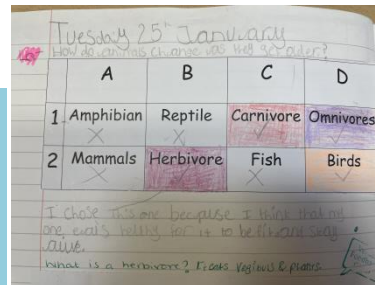 Tuesday 25th January
How do animals change as they get older?
A B C D
1 Amphibian Reptile Carnivore Omnivores
2 Mammals Herbivore Fish Birds
I chose this one because I think that my
one eats healthy for it to be fit and stay
alive.
What is a herbivore? It eats & plants